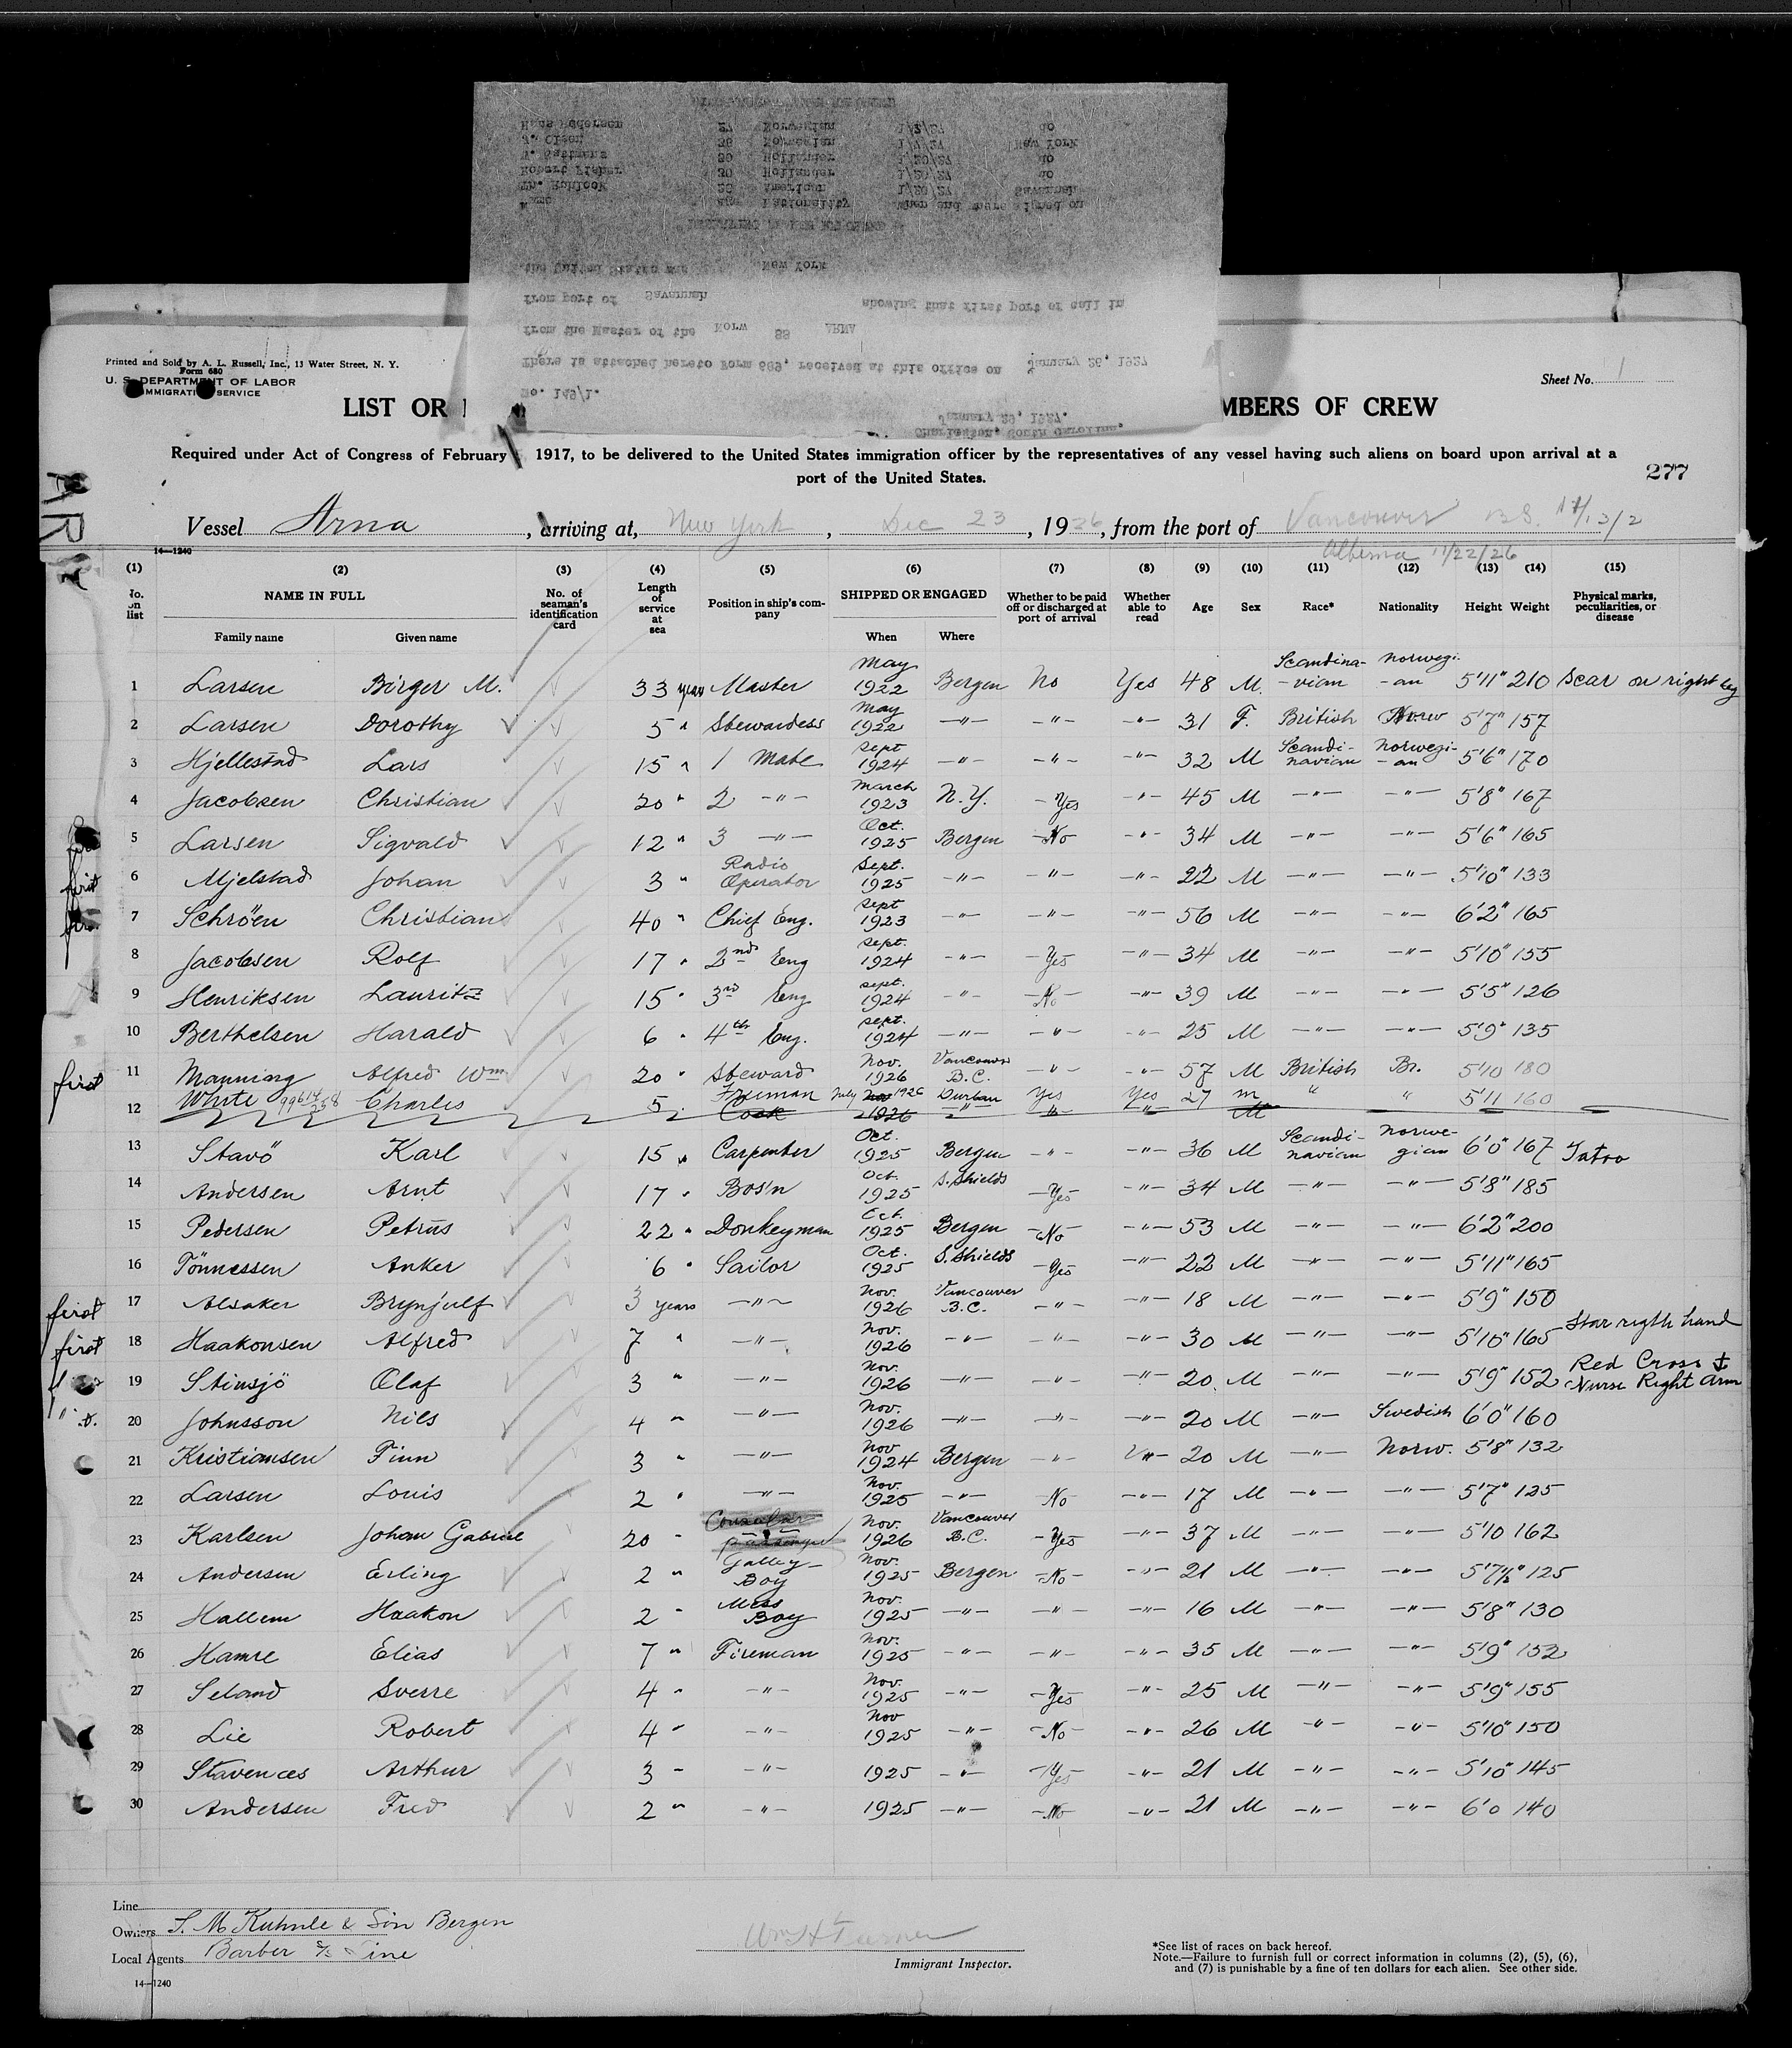 Charleston, South Carolina,
January 29, 1927.
No. 149/1.
There is attached hereto Form 689, received at this office on January 26, 1927
from the Master of the Norw SS ARNA
from port of Savannah showing that first port of call in
the United States was New York
Name Age Nationality When and where signed on
29 American 1/20/27 Savannah
Robert Fisher 30 Hollander 1/20/27 do
39 Hollander 1/20/27 do
J. Olsen 36 Norwegian 1/7/27 New York
Hans Pederson 27 Norwegian 1/2/27 do
Printed and Sold by A. L. Russell, Inc., 13 Water Street, N. Y.
Form 680
U. S. DEPARTMENT OF LABOR
IMMIGRATION SERVICE
Sheet No. 1
LIST OR MBERS OF CREW
Required under Act of Congress of February 1917, to be delivered to the United States immigration officer by the representatives of any vessel having such aliens on board upon arrival at a
port of the United States.
277
Vessel Arna, arriving at, New York, Dec 23, 1926, from the port of Vancouver
Alberni 11/22/26
14—1240
(1) (2) (3) (4) (5) (6) (7) (8) (9) (10) (11) (12) (13) (14) (15)
No. on list NAME IN FULL Family name Given name No. of seaman's identification card Length of service at sea Position in ship's company SHIPPED OR ENGAGED When Where Whether to be paid off or discharged at port of arrival Whether able to read Age Sex Race* Nationality Height Weight Physical marks, peculiarities, or disease
1 Larsen Birger M. 33 years Master May 1922 Bergen No Yes 48 M. Scandina-vian Norwegi-an 5'11" 210 Scar on right leg
2 Larsen Dorothy 5 " Stewardess May 1922 —"— —"— —"— 31 F. British Norw 5'7" 157
3 Hjellestad Lars 15 " 1 Mate Sept 1924 —"— —"— —"— 32 M Scandi-navian Norwegi-an 5'6" 170
4 Jacobsen Christian 20 " 2 —"— March 1923 N.Y. Yes —"— 45 M —"— —"— 5'8" 167
5 Larsen Sigvald 12 " 3 —"— Oct. 1925 Bergen No —"— 34 M —"— —"— 5'6" 165
first 6 Mjelstad Johan 3 " Radio Operator Sept. 1925 —"— —"— —"— 22 M —"— —"— 5'10" 133
7 Schröen Christian 40 " Chief Eng. Sept 1923 —"— —"— 56 M —"— —"— 6'2" 165
8 Jacobsen Rolf 17 " 2nd Eng Sept. 1924 —"— Yes —"— 34 M —"— —"— 5'10" 155
9 Henriksen Lauritz 15 " 3rd Eng Sept. 1924 —"— No —"— 39 M —"— —"— 5'5" 126
10 Berthelsen Harald 6 " 4th Eng. Sept. 1924 —"— —"— —"— 25 M —"— —"— 5'9" 135
first 11 Manning Alfred Wm 20 " Steward Nov. 1926 Vancouver B.C. —"— —"— 57 M British Br. 5'10 180
12 White Charles 5 " Fireman Cook July 1926 Nov 1926 Durban Yes Yes 27 m " " 5'11 160
13 Stavö Karl 15 " Carpenter Oct. 1925 Bergen —"— —"— 36 M Scandi-navian Norwe-gian 6'0" 167 Tatoo
14 Andersen Arnt 17 " Bos'n Oct. 1925 S. Shields Yes —"— 34 M —"— —"— 5'8" 185
15 Pedersen Petrus 22 " Donkeyman Oct. 1925 Bergen No —"— 53 M —"— —"— 6'2" 200
16 Tönnessen Anker 6 " Sailor Oct. 1925 S. Shields Yes —"— 22 M —"— —"— 5'11" 165
first 17 Alsaker Brynjulf 3 years —"— Nov. 1926 Vancouver B.C. —"— —"— 18 M —"— —"— 5'9" 150
first 18 Haakonsen Alfred 7 " —"— Nov. 1926 —"— —"— —"— 30 M —"— —"— 5'10" 165 Star rigth hand
19 Stinsjö Olaf 3 " —"— Nov. 1926 —"— —"— —"— 20 M —"— —"— 5'9" 152 Red Cross + Nurse Right Arm
20 Johnsson Nils 4 " —"— Nov. 1926 —"— —"— —"— 20 M —"— Swedish 6'0" 160
21 Kristiansen Finn 3 " —"— Nov 1924 Bergen —"— —"— 20 M —"— Norw. 5'8" 132
22 Larsen Louis 2 " —"— Nov. 1925 —"— No —"— 17 M —"— —"— 5'7" 125
23 Karlsen Johan Gabriel 20 " Consular passenger Nov. 1926 Vancouver B.C. Yes —"— 37 M —"— —"— 5'10 162
24 Andersen Erling 2 " Galley Boy Nov. 1925 Bergen No —"— 21 M —"— —"— 5'7½" 125
25 Hallem Haakon 2 " Mess Boy Nov. 1925 —"— —"— —"— 16 M —"— —"— 5'8" 130
26 Hamre Elias 7 " Fireman Nov. 1925 —"— —"— —"— 35 M —"— —"— 5'9" 152
27 Seland Sverre 4 " —"— Nov. 1925 —"— Yes —"— 25 M —"— —"— 5'9" 155
28 Lie Robert 4 " —"— Nov 1925 —"— No —"— 26 M —"— —"— 5'10" 150
29 Stavences Arthur 3 " —"— 1925 —"— Yes —"— 21 M —"— —"— 5'10" 145
30 Andersen Fred 2 " —"— 1925 —"— No —"— 21 M —"— —"— 6'0 140
Line
Owners S. M Kuhnle & Sön Bergen
Local Agents Barber S/S Line
14—1240
Wm H Turner
Immigrant Inspector.
*See list of races on back hereof.
Note.—Failure to furnish full or correct information in columns (2), (5), (6),
and (7) is punishable by a fine of ten dollars for each alien. See other side.